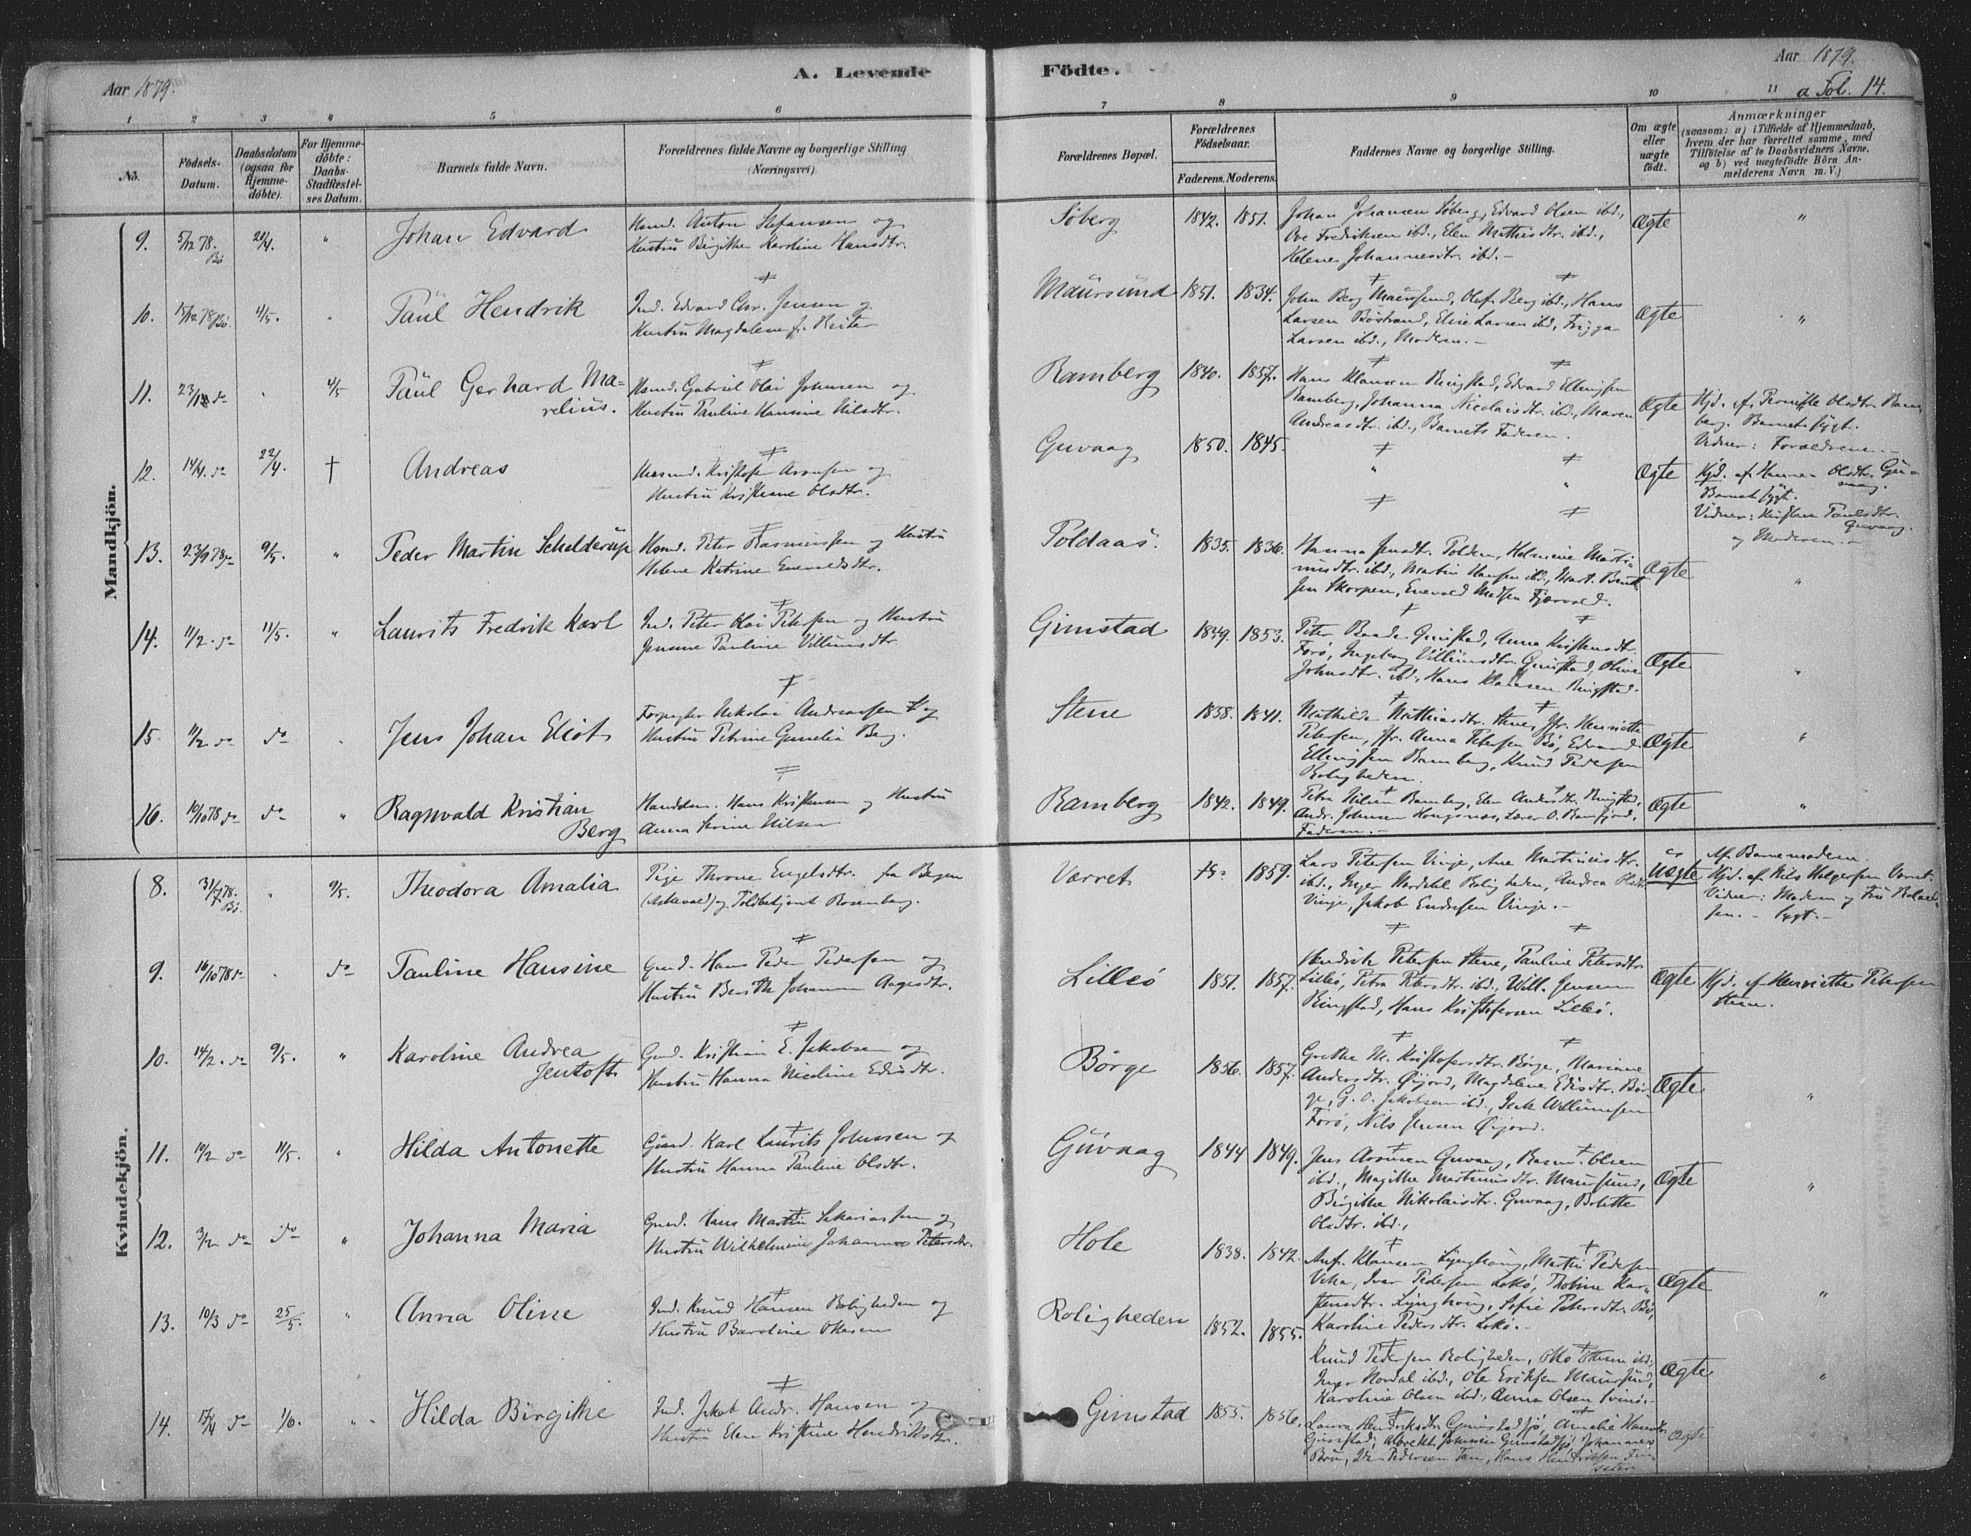 Aar 1879.
A. Levende
Födte.
Aar 1879.
a Fol. 14.
1 2 3 4 5 6 7 8 9 10 11
No.
Födsels-Datum.
Daabsdatum (ogsaa for Hjemmedöbte).
For Hjemmedöbte: Daabs-Stadfæstelses Datum.
Barnets fulde Navn.
Forældrenes fulde Navne og borgerlige Stilling (Næringsvei)
Forældrenes Bopæl.
Forældrenes Födselsaar.
Faderens. Moderens.
Faddernes Navne og borgerlige Stilling.
Om ægte eller uægte födt.
Anmærkninger
(saasom: a) i Tilfælde af Hjemmedaab,
hvem der har forrettet samme, med
Tilföielse af to Daabsvidners Navne,
og b) ved uægtefödte Börn An-
melderens Navn m. V.)
Mandkjön.
9. 5/12 78. Bö Johan Edvard
Anton Stefansen og
Hustru Birgitte Karoline Hansdtr.
Söberg 1842. 1851.
Johan Johansen Söberg, Edvard Olsen ibd.,
Ove Fredriksen ibd., Elen Mathisdtr. ibd.,
Helene Johannesdtr. ibd.
Ægte "
10. 11/5. Paul Hendrik
Ind. Edvard Chr. Jensen og
Hustru Magdalene f. Reitan
Maursund 1851. 1834.
John Berg Maursund, Olaf Berg ibd., Hans
Larsen Böstrand, Elise Larsen ibd., Frigga
Larsen ibd., Moderen.
Ægte "
11. Paul Gerhard Ma-
relius.
Gabriel Olai Johnsen og
Hustru Pauline Hansine Nilsdtr.
Ramberg 1840. 1857.
Hans Klausen Ringstad, Edvard Ellingsen
Ramberg, Johanna Nicolaisdtr. ibd., Maren
Andreasdtr. ibd., Barnets Faderen.
Ægte
Hjd. af Olsdtr. Ram-
berg. Barnet sygt.
Vidner: Forældrene.
12. 14/4. do 22/4. † Andreas
Kristofer Aronsen og
Hustru Kristiane Olsdtr.
Guvaag 1850. 1845.
Ægte
Hjd. af Hanna Olsdtr. Gu-
vaag.
Barnet sygt.
Vidner: Paulsdtr.
Guvaag
og Moderen.
13. 23/9 78 do 9/5. " Peder Martin Schelderup
Peter Rasmussen og Hustru
Helene Katrine Enevoldsdtr.
Poldaas. 1835. 1836.
Hanna Jensdtr. Polden, Holmine Marti-
nusdtr. ibd., Martin Hansen ibd., Mart. Bent-
sen Skorpen, Enevold Madsen Fjærvold.
Ægte "
14. 11/2. do 11/5. " Laurits Fredrik Karl
Ind. Peter Olai Petersen og Hustru
Jensine Pauline Villumsdtr.
Grimstad 1849. 1853.
Peter Baade Grimstad, Anna Kristensdtr.
Forö, Ingeborg Villumsdtr. Grimstad, Oline
Johnsdtr. ibd., Hans Klausen Ringstad.
Ægte "
15. 11/2 do do Jens Johan Eliot
Forpagter Nikolai Andreassen og
Hustru Petrine Cornelia Berg.
Stene 1838. 1841.
Mathilde Mathiasdtr. Stene, Jfr. Henriette
Petersen, Jfr. Anna Petersen Bö, Edvard
Ellingsen Ramberg, Knud Pedersen
Roligheden.
Ægte "
16. 10/10 78 do do " Ragnvald Kristian
Berg
Handelsm. Hans Kristensen og Hustru
Anna Serine Nilsen
Ramberg 1842. 1849.
Petra Nilsen Ramberg, Elen Andersdtr. Ringstad,
Andr. Johnsen Kongsnæs, Lærer O. Ramfjord,
Faderen.
Ægte "
Kvindekjön.
8. 31/7 78. Bö. " 9/5. Theodora Amalia
Pige Throne Engelsdtr. fra Bergen
(Askevold) og Toldbetjent Rosenberg.
Værret 1859.
Lars Petersen Vinje, Ane Martinusdtr.
ibd., Inger Nordahl Roligheden, Andrea Olsdtr.
Vinje, Jakob Endresen Vinje.
Uægte
Af Barnemoderen.
Hjd. af Nils Holgersen Værret.
Vidner: Moderen og Fru Roland-
sen. - Sygt.
9. 16/10 78 do do Pauline Hansine
Gmd. Hans Peder Pedersen og
Hustru Berith Johanna Aagesdtr.
Lilleö 1851. 1857.
Hendrik Petersen Stene, Pauline Petersdtr
Lilleö, Petra Petersdtr. ibd., Will. Jensen
Ringstad, Hans Kristofersen Lilleö.
Ægte
Hjd. af Henriette Petersen
Stene.
10. 14/2. do 9/5. " Karoline Andrea
Jentoft
Gmd. Kristian E. Jakobsen og
Hustru Hanna Nicoline Edisdtr.
Börge 1856. 1857.
Grethe M. Kristofersdtr. Börge, Mariane
Andersdtr. Öijord, Magdalene Edisdtr. Bör-
ge, G. O. Jakobsen ibd., Willumsen
Forö, Nils Jensen Öijord.
Ægte "
11. 19/2 do 11/5. " Hilda Antonette
Gmd. Karl Laurits Johnssen og
Hustru Hanna Pauline Olsdtr.
Guvaag 1844 1849.
Jens Aronsen Guvaag, Rasm. Olsen
ibd., Magithe Martinusdtr. Maursund,
Birgithe Nikolaisdtr. Guvaag, Bolette
Olsdtr. ibd.,
Ægte "
12. 3/2 do do " Johanna Maria
Gmd. Hans Martin Sakariassen og
Hustru Wilhelmine Johanna Petersdtr.
Hole 1838. 1842.
Anf. Klausen Lynghaug, Martin Pedersen
Vika, Ivar Pedersen Lokö, Thobine Kar-
stensdtr. Lynghaug, Sofie Petersdtr. Bö,
Karoline Pedersdtr. Lokö.
Ægte "
13. 10/3 do 25/5. " Anna Oline
Ind. Knud Hansen Roligheden og
Hustru Baroline Ottesen
Roligheden 1852. 1855.
Knud Pedersen Roligheden, ibd.,
Inger Nordal ibd., Ole Eriksen Maursund,
Karoline Olsen ibd., Anna Olsen
Ægte "
14. 17/4 do 1/6. " Hilda Birgithe
Ind. Jakob Andr. Hansen og
Hustru Elen Kristine Hendriksdtr.
Grimstad 1855. 1856.
Laura Hendriksdtr. Grimstadsjö, Amalie Hansdtr.
Grimstad, Albrekt Johnsen Grimstadsjö, Johannes
Pedersen Hans Hendriksen
Ægte